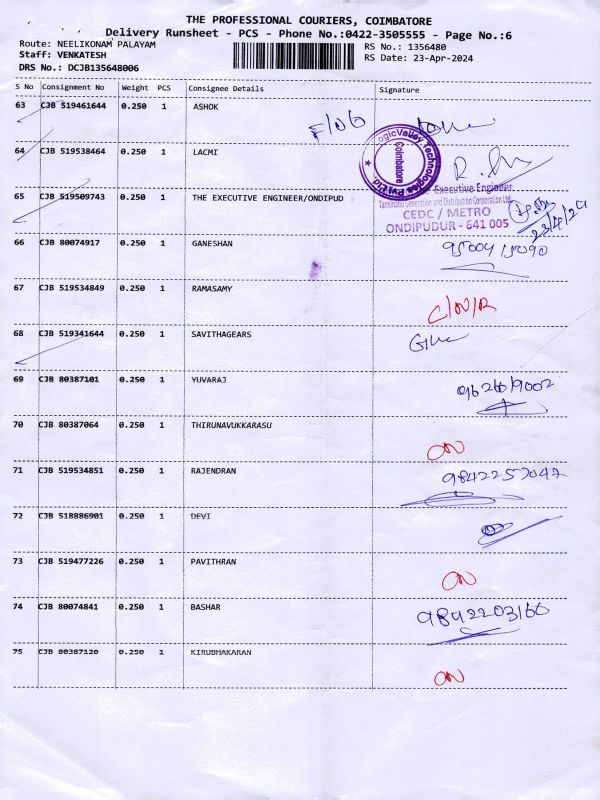 THE PROFESSIONAL COURIERS, COIMBATORE
Delivery Runsheet - PCS - Phone No.:0422-3505555 - Page No.:6
Route: NEELIKONAM PALAYAM
RS No.: 1356480
Staff: VENKATESH
RS Date: 23-Apr-2024
DRS No.: DCJB135648006
S No Consignment No Weight PCS Consignee Details Signature
63 CJB 519461644 0.250 1 ASHOK
64 CJB 519538464 0.250 1 LACMI
LogicValley Technologies Pvt Ltd.
Coimbatore
65 CJB 519509743 0.250 1 THE EXECUTIVE ENGINEER/ONDIPUD
Executive Engineer
Tamilnadu Generation and Distribution Corporation Ltd.
CEDC / METRO
ONDIPUDUR - 641 005
23/4/24
66 CJB 80074917 0.250 1 GANESHAN
67 CJB 519534849 0.250 1 RAMASAMY C/N/R
68 CJB 519341644 0.250 1 SAVITHAGEARS
69 CJB 80387101 0.250 1 YUVARAJ
70 CJB 80387064 0.250 1 THIRUNAVUKKARASU ON
71 CJB 519534851 0.250 1 RAJENDRAN 9842257047
72 CJB 518886901 0.250 1 DEVI
73 CJB 519477226 0.250 1 PAVITHRAN ON
74 CJB 80074841 0.250 1 BASHAR 9842203166
75 CJB 80387120 0.250 1 KIRUBHAKARAN ON